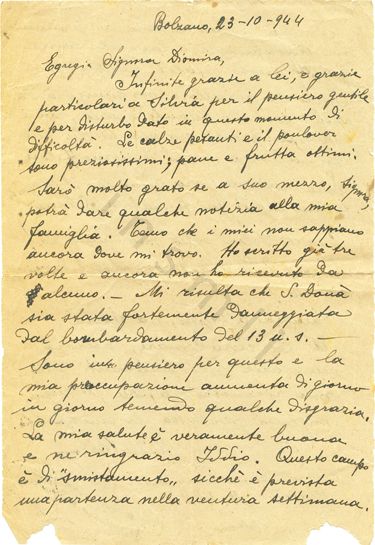 Bolzano, 23-10-944
Egregia Signora Diomira,
Infinite grazie a lei, e grazie
particolari a Silvia per il pensiero gentile
e per disturbo dato in questo momento di
difficoltà. Le calze pesanti e il poulover
sono preziosissimi; pane e frutta ottimi.
Sarò molto grato se a suo mezzo, Signora,
potrà dare qualche notizia alla mia
famiglia. Temo che i miei non sappiano
ancora dove mi trovo. Ho scritto già tre
volte e ancora non ho ricevuto da
alcuno. — Mi risulta che S. Donà
sia stata fortemente danneggiata
dal bombardamento del 13 u.s. —
Sono in pensiero per questo e la
mia preoccupazione aumenta di giorno
in giorno temendo qualche disgrazia.
La mia salute è veramente buona
e ne ringrazio Iddio. Questo campo
è di "smistamento" sicchè è prevista
una partenza nella ventura settimana.